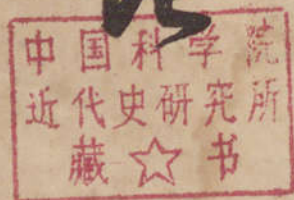 中国科学院
近代史研究所
藏☆书